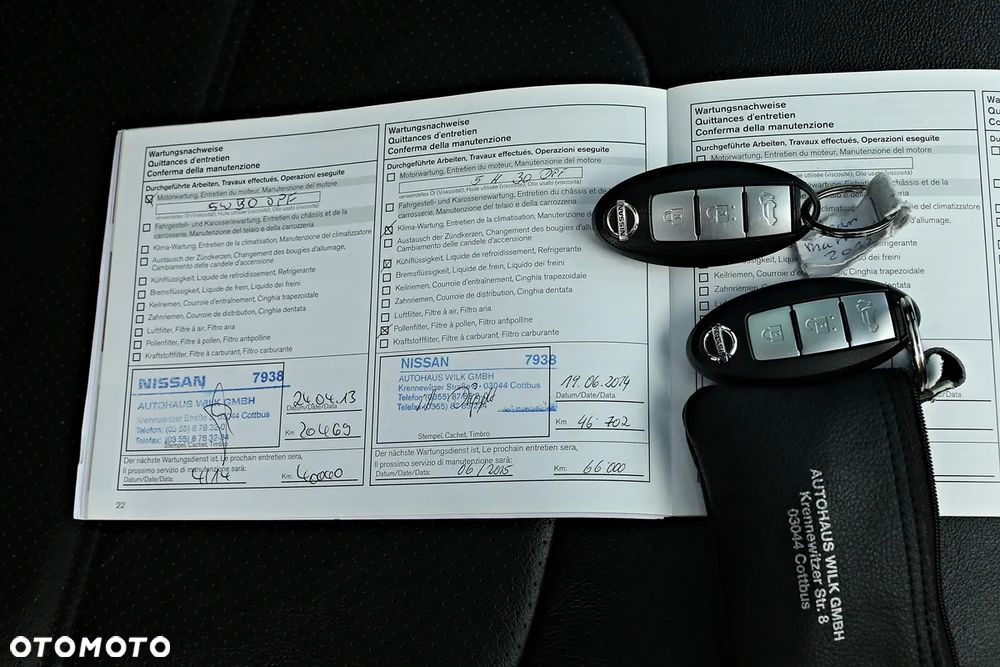 Wartungsnachweise
Quittances d'entretien
Conferma della manutenzione
Durchgeführte Arbeiten, Travaux effectués, Operazioni eseguite
Motorwartung, Entretien du moteur, Manutenzione del motore
5W30 DPF
verwendetes Öl (Viskosität), Huile utilisée (viscosité), Olio usato (viscosità)
Fahrgestell- und Karosseriewartung, Entretien du châssis et de la
carrosserie, Manutenzione del telaio e della carrozzeria
Klima-Wartung, Entretien de la climatisation, Manutenzione del climatizzatore
Austausch der Zündkerzen, Changement des bougies d'allumage,
Cambiamento delle candele d'accensione
Kühlflüssigkeit, Liquide de refroidissement, Refrigerante
Bremsflüssigkeit, Liquide de frein, Liquido dei freni
Keilriemen, Courroie d'entraînement, Cinghia trapezoidale
Zahnriemen, Courroie de distribution, Cinghia dentata
Luftfilter, Filtre à air, Filtro aria
Pollenfilter, Filtre à pollen, Filtro antipolline
Kraftstofffilter, Filtre à carburant, Filtro carburante
NISSAN 7938
AUTOHAUS WILK GMBH
Krennewitzer Straße 03044 Cottbus
Telefon: (03 55) 8 78 32-0
Telefax: (03 55) 8 78 32-34
Stempel, Cachet, Timbro
24.04.13
Datum/Date/Data
Km 20469
Der nächste Wartungsdienst ist, Le prochain entretien sera,
Il prossimo servizio di manutenzione sarà:
Datum/Date/Data: 4/14 Km: 40000
22
Wartungsnachweise
Quittances d'entretien
Conferma della manutenzione
Durchgeführte Arbeiten, Travaux effectués, Operazioni eseguite
Motorwartung, Entretien du moteur, Manutenzione del motore
5 W 30 DPF
verwendetes Öl (Viskosität), Huile utilisée (viscosité), Olio usato (viscosità)
Fahrgestell- und Karosseriewartung, Entretien du châssis et de la
carrosserie, Manutenzione del telaio e della carrozzeria
Klima-Wartung, Entretien de la climatisation, Manutenzione
Austausch der Zündkerzen, Changement des bougies d'allumage,
Cambiamento delle candele d'accensione
Kühlflüssigkeit, Liquide de refroidissement, Refrigerante
Bremsflüssigkeit, Liquide de frein, Liquido dei freni
Keilriemen, Courroie d'entraînement, Cinghia trapezoidale
Zahnriemen, Courroie de distribution, Cinghia dentata
Luftfilter, Filtre à air, Filtro aria
Pollenfilter, Filtre à pollen, Filtro antipolline
Kraftstofffilter, Filtre à carburant, Filtro carburante
NISSAN 7938
AUTOHAUS WILK GMBH
Krennewitzer Straße 8 · 03044 Cottbus
Telefon
Telefax
Stempel, Cachet, Timbro
19.06.2014
Datum/Date/Data
Km 46 702
Der nächste Wartungsdienst ist, Le prochain entretien sera,
Il prossimo servizio di manutenzione sarà:
Datum/Date/Data: 06/2015 Km: 66 000
Wartungsnachweise
Quittances d'entretien
Conferma della manutenzione
Durchgeführte Arbeiten, Travaux effectués, Operazioni eseguite
Motorwartung, Entretien du moteur, Manutenzione del motore
NISSAN
NISSAN
AUTOHAUS WILK GMBH
Krennewitzer Str. 8
03044 Cottbus
OTOMOTO